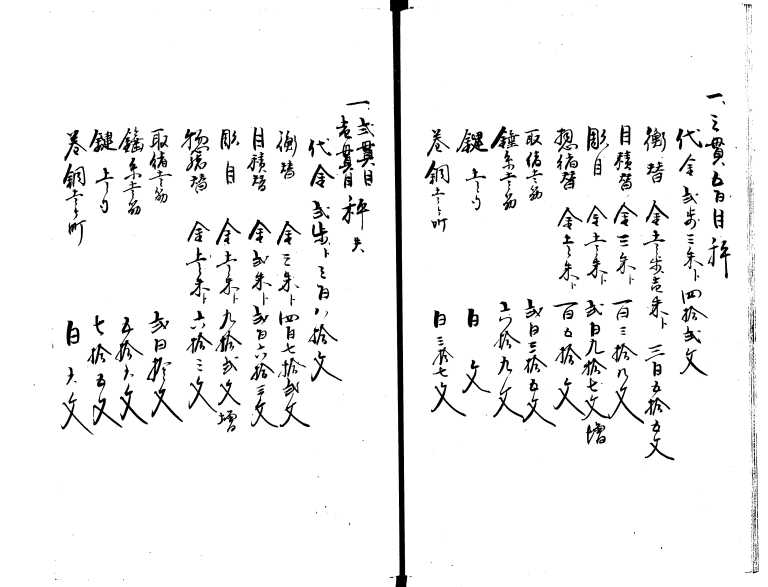 一、三貫五百目秤
代金弐歩三朱ト四拾弐文
衡替 金壱歩壱朱ト 三百五拾五文
目積替 金三朱ト 百三拾八文
彫目 金壱朱ト 弐百九拾七文増
惣繕替 金壱朱ト 百五拾文
取緒壱筋 弐百三拾五文
錘糸壱筋 六拾九文
鍵 壱ツ 百文
巻銅壱ヶ所 百三拾七文
一、弐貫目
壱貫目 秤
代金弐歩ト三百八拾文
衡替 金三朱ト四百七拾弐文
目積替 金弐朱ト弐百六拾三文
彫目 金壱朱ト九拾弐文増
惣繕替 金壱朱ト六拾三文
取緒壱筋 弐百拾文
錘糸壱筋 五拾六文
鍵 壱ツ 七拾五文
巻銅壱ヶ所 百六文